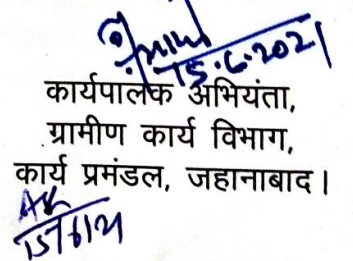 15.6.2021
कार्यपालक अभियंता,
ग्रामीण कार्य विभाग,
कार्य प्रमंडल, जहानाबाद।
15/6/21